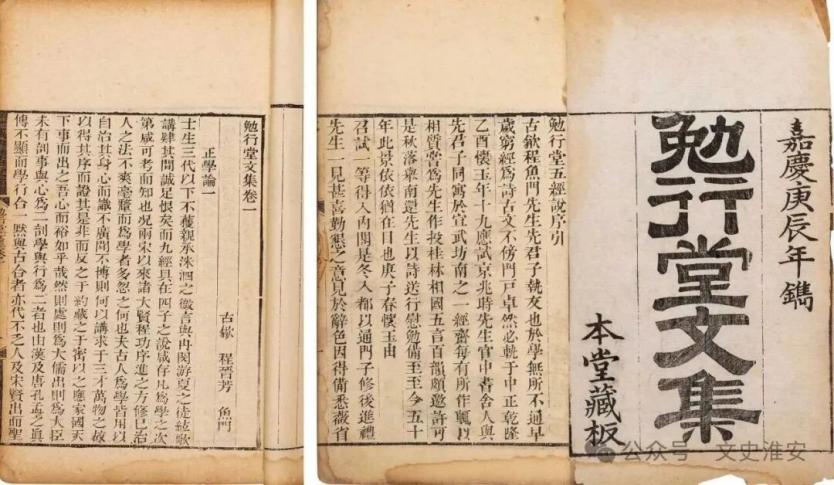 嘉慶庚辰年鐫
勉行堂文集
本堂藏板
勉行堂五經說序引
古歙程魚門先生先君子執友也於學無所不通早
歲窮經爲詩古文不傍門戶卓然必軌于中正乾隆
乙酉懷玉年十九應試京兆時先生官中書舍人與
先君子同寓於宣武坊南之一經齋每有所作輒以
相質嘗爲先生作投桂林相國五言百韻頗邀許可
是秋落棄南還先生以詩送行慰勉備至至今五十
年此景依依猶在目也庚子春懷玉由
召試一等得入內閣是冬入都以通門子修後進禮
先生一見甚喜勤懇之意見於辭色因得備悉薇省
勉行堂文集卷一
古歙 程晉芳 魚門
正學論一
士生三代以下不獲親承洙泗之微言與冉閔游夏之徒絃歌
講肄其間誠足恨矣而九經具在四子之說咸存凡爲學之次
第咸可考而知也况兩宋以來諸大賢程功序進之方修己治
人之法不爽毫釐而爲學者多忽之何也夫古人爲學皆用以
自治其身心而識不廣聞不博則何以講求于三才萬物之故
以得其序而證其是非而反之于約藏之于密以之應家國天
下事而出之吾心而裕如乎哉然則處則爲大儒出則爲大臣
未有剖事與心爲二剖學與行爲二者也由漢及唐孔孟之眞
傳不顯而學行合一默與古合者亦代不乏人及宋賢出而聖
公众号 · 文史淮安